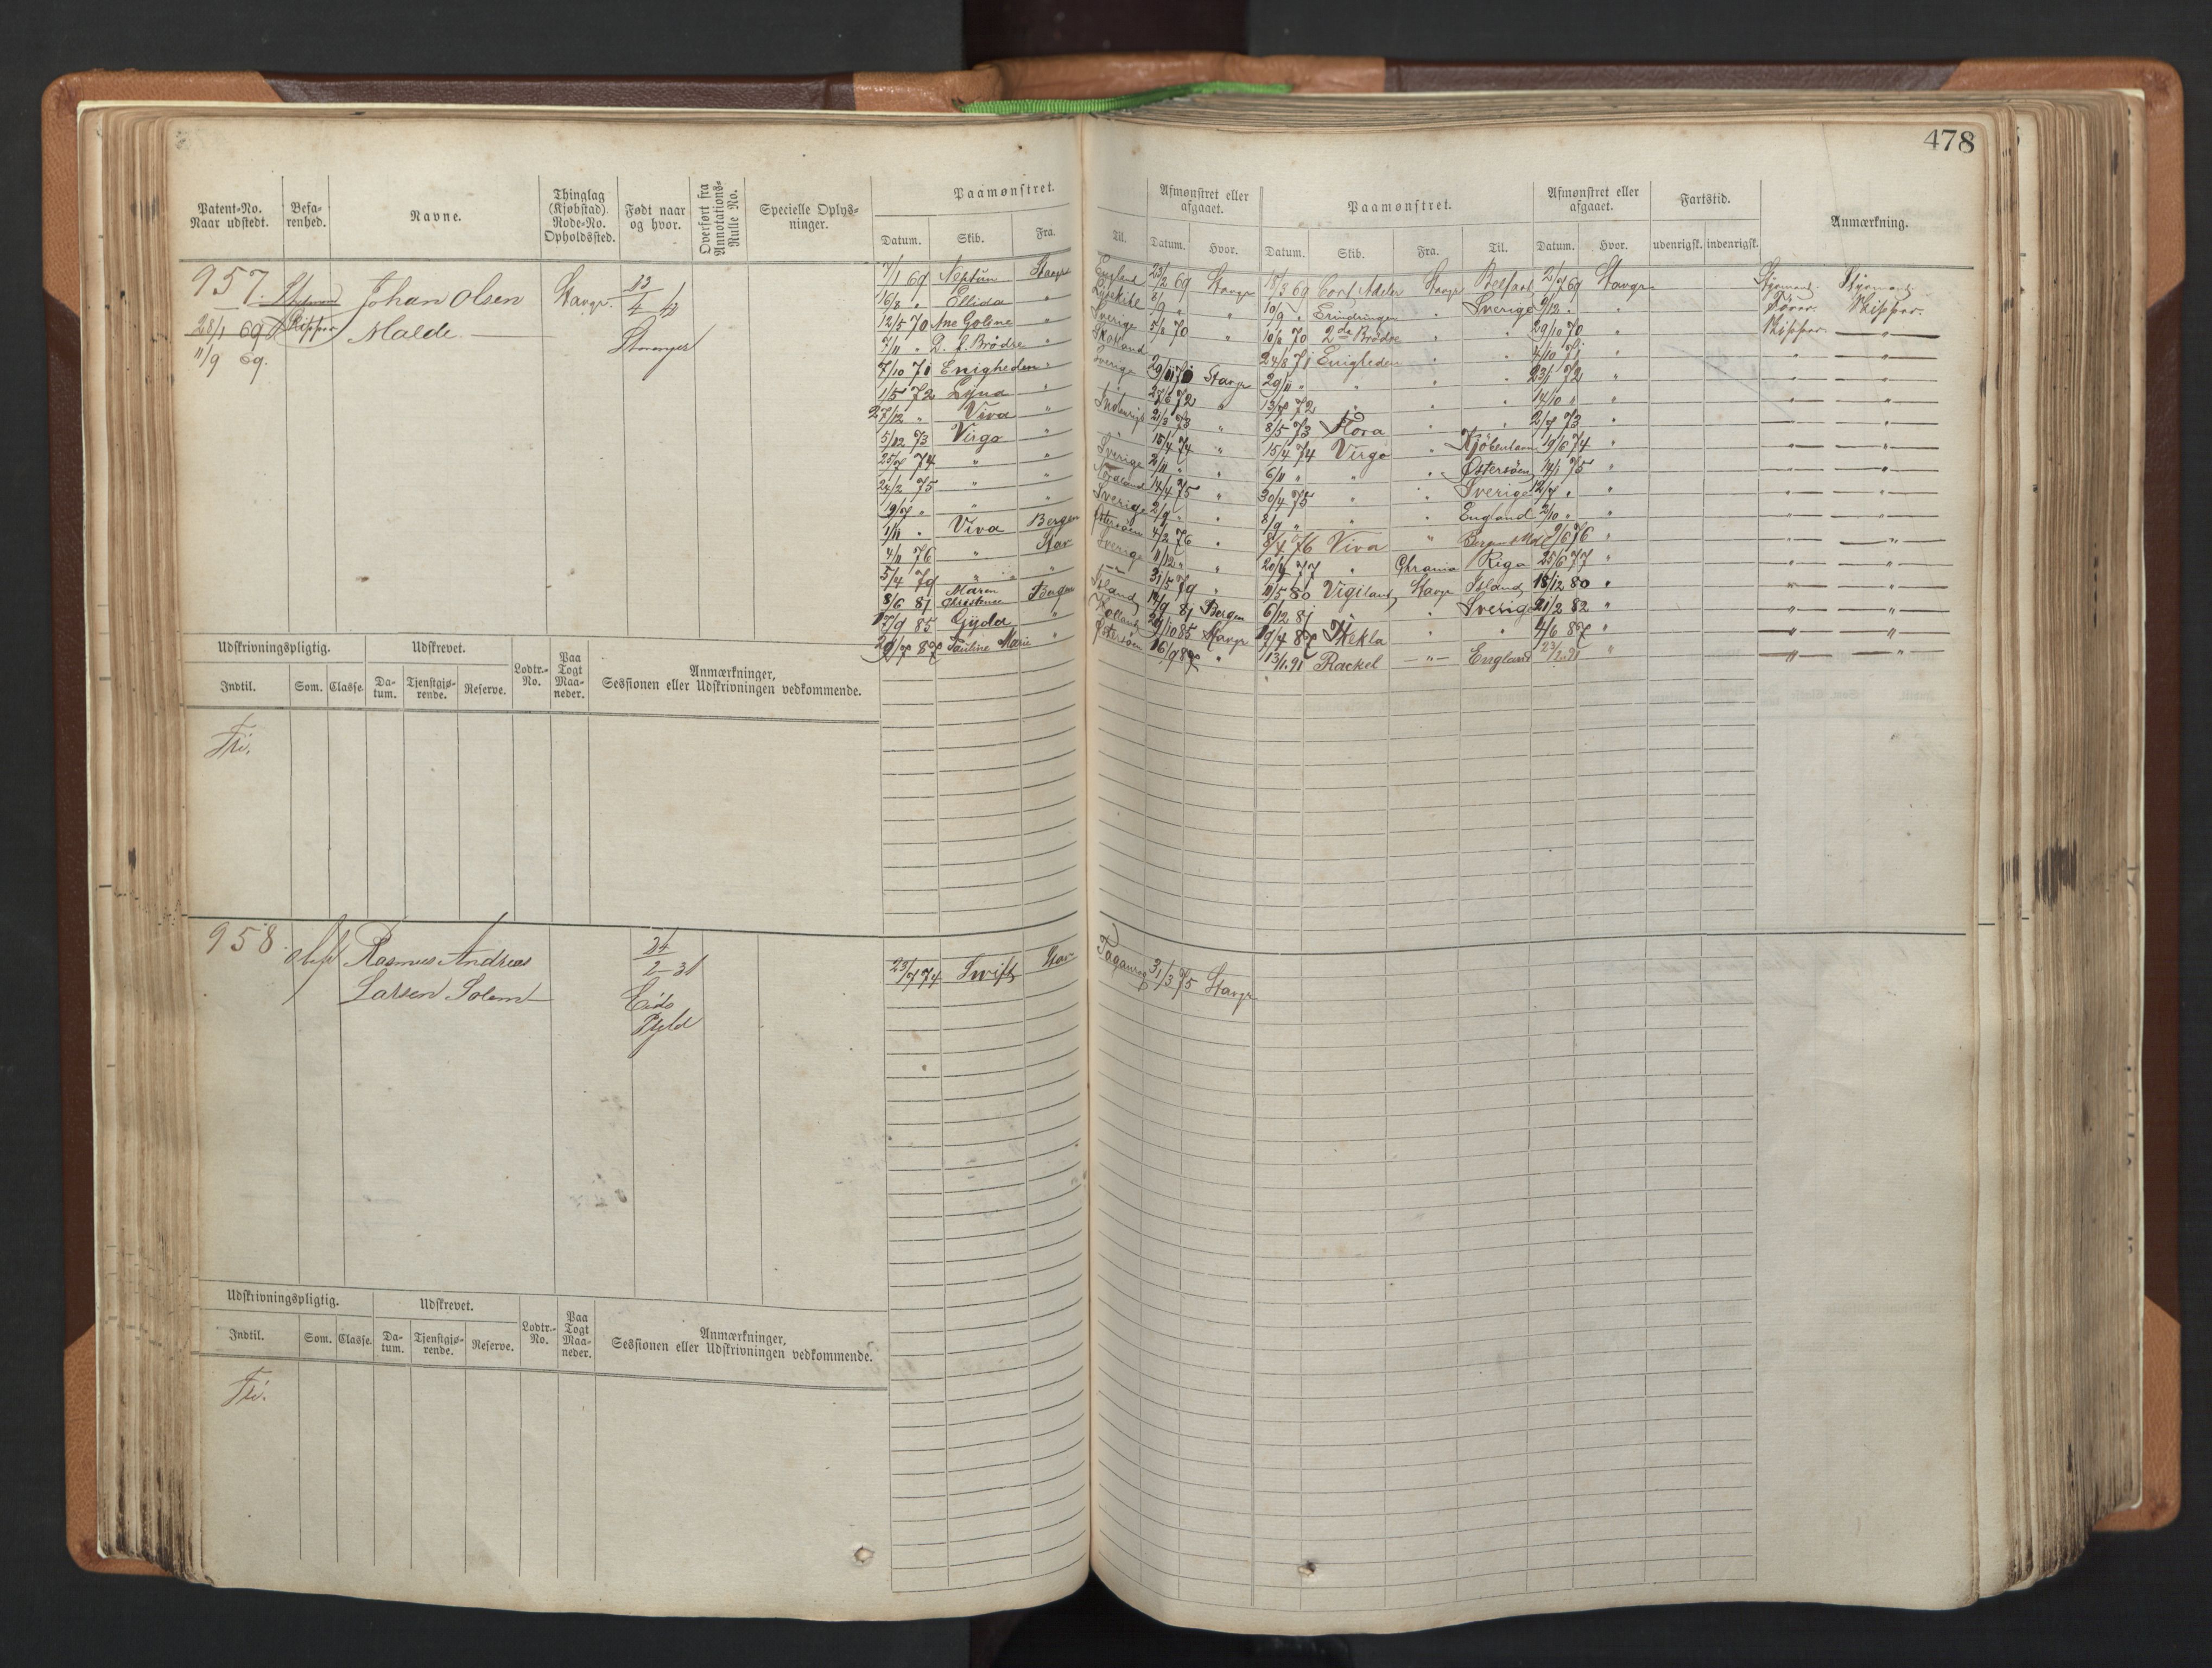 478
Patent-No. Naar udstedt.
Befa-renhed.
Navne.
Thinglag (Kjøbstad). Rode-No. Opholdssted.
Født naar og hvor.
Overført fra Annotations-Rulle No.
Specielle Oplys-ninger.
Paamønstret.
Datum. Skib. Fra. Til.
Afmønstret eller afgaaet.
Datum. Hvor.
Paamønstret.
Datum. Skib. Fra. Til.
Afmønstret eller afgaaet.
Datum. Hvor.
Fartstid.
udenrigsk. indenrigsk.
Anmærkning.
957.
28/1 69
11/9 69.
Skipper
Johan Olsen
Malde
Stavgr.
13/4 42
Stavanger
7/1 69 Neptun Stavgr England 23/2 69 Stavgr 18/3 69 Cort Adeler Stavgr Belfast 2/7 69 Stavgr Styrmand. Styrmand.
16/8 " Ellida " Lysekile 8/9 " " 10/9 " Erindringen " Sverige 9/12 " " Fører. Skipper.
12/5 70 Ane Goline " Sverige 5/8 70 " 10/8 70 2de Brødre " " 29/10 70 " Skipper. "
7/11 " D. f. Brødre " Skotland 24/8 71 Enigheden " " 4/10 71 " " "
7/10 71 Enigheden " Sverige 29/11 71 Stavgr 29/11 " " " " 23/1 72 " " "
1/5 72 " " 27/6 72 " 13/7 72 " " " 14/10 " " " "
27/12 " Viva " Indenrigs 21/3 73 " 8/5 73 Flora " " 2/7 73 " " "
5/12 73 Virgo " " 15/4 74 " 15/4 74 Virgo " Kjøbenhavn 19/6 74 " " "
25/7 74 " " Sverige 2/11 " " 6/11 " " " Østersøen 14/1 75 " " "
24/2 75 " " 14/4 75 " 30/4 75 " " Sverige 12/7 " " " "
19/7 " " " Sverige 2/9 " " 8/9 " " " England 2/10 " " " "
1/11 " Viva Bergen Østersøen 4/2 76 " 8/4 76 Viva " 9/6 76 " " "
4/11 76 " Stav Sverige 11/12 " " 20/4 77 " Chrania Riga 25/6 77 " " "
5/4 79 " " " 31/5 79 " 11/5 80 Vigiland Stavgr Island 18/12 80 " " "
8/6 81 Maren Christence Bergen Island 12/9 81 Bergen 6/12 81 " " Sverige 21/2 82 " " "
17/9 85 Gyda " Holland 29/10 85 Stavgr 19/4 87 Hekla " " 4/6 87 " " "
20/7 87 Pauline Marie " Østersøen 16/9 87 " 13/1 91 Rackel " England 23/2 91 " " "
Udskrivningspligtig.
Indtil. Som. Classe.
Udskrevet.
Da-tum. Tjenstgjø-rende. Reserve.
Lodtr.-No.
Paa Togt Maa-neder.
Anmærkninger,
Sessionen eller Udskrivningen vedkommende.
Fri.
958.
Rasmus Andreas
Larsen Solem
24/2 31
Eids
Pgld
23/7 74 Swift Stav Taganrog 31/3 75 Stavgr
Udskrivningspligtig.
Indtil. Som. Classe.
Udskrevet.
Da-tum. Tjenstgjø-rende. Reserve.
Lodtr.-No.
Paa Togt Maa-neder.
Anmærkninger,
Sessionen eller Udskrivningen vedkommende.
Fri.